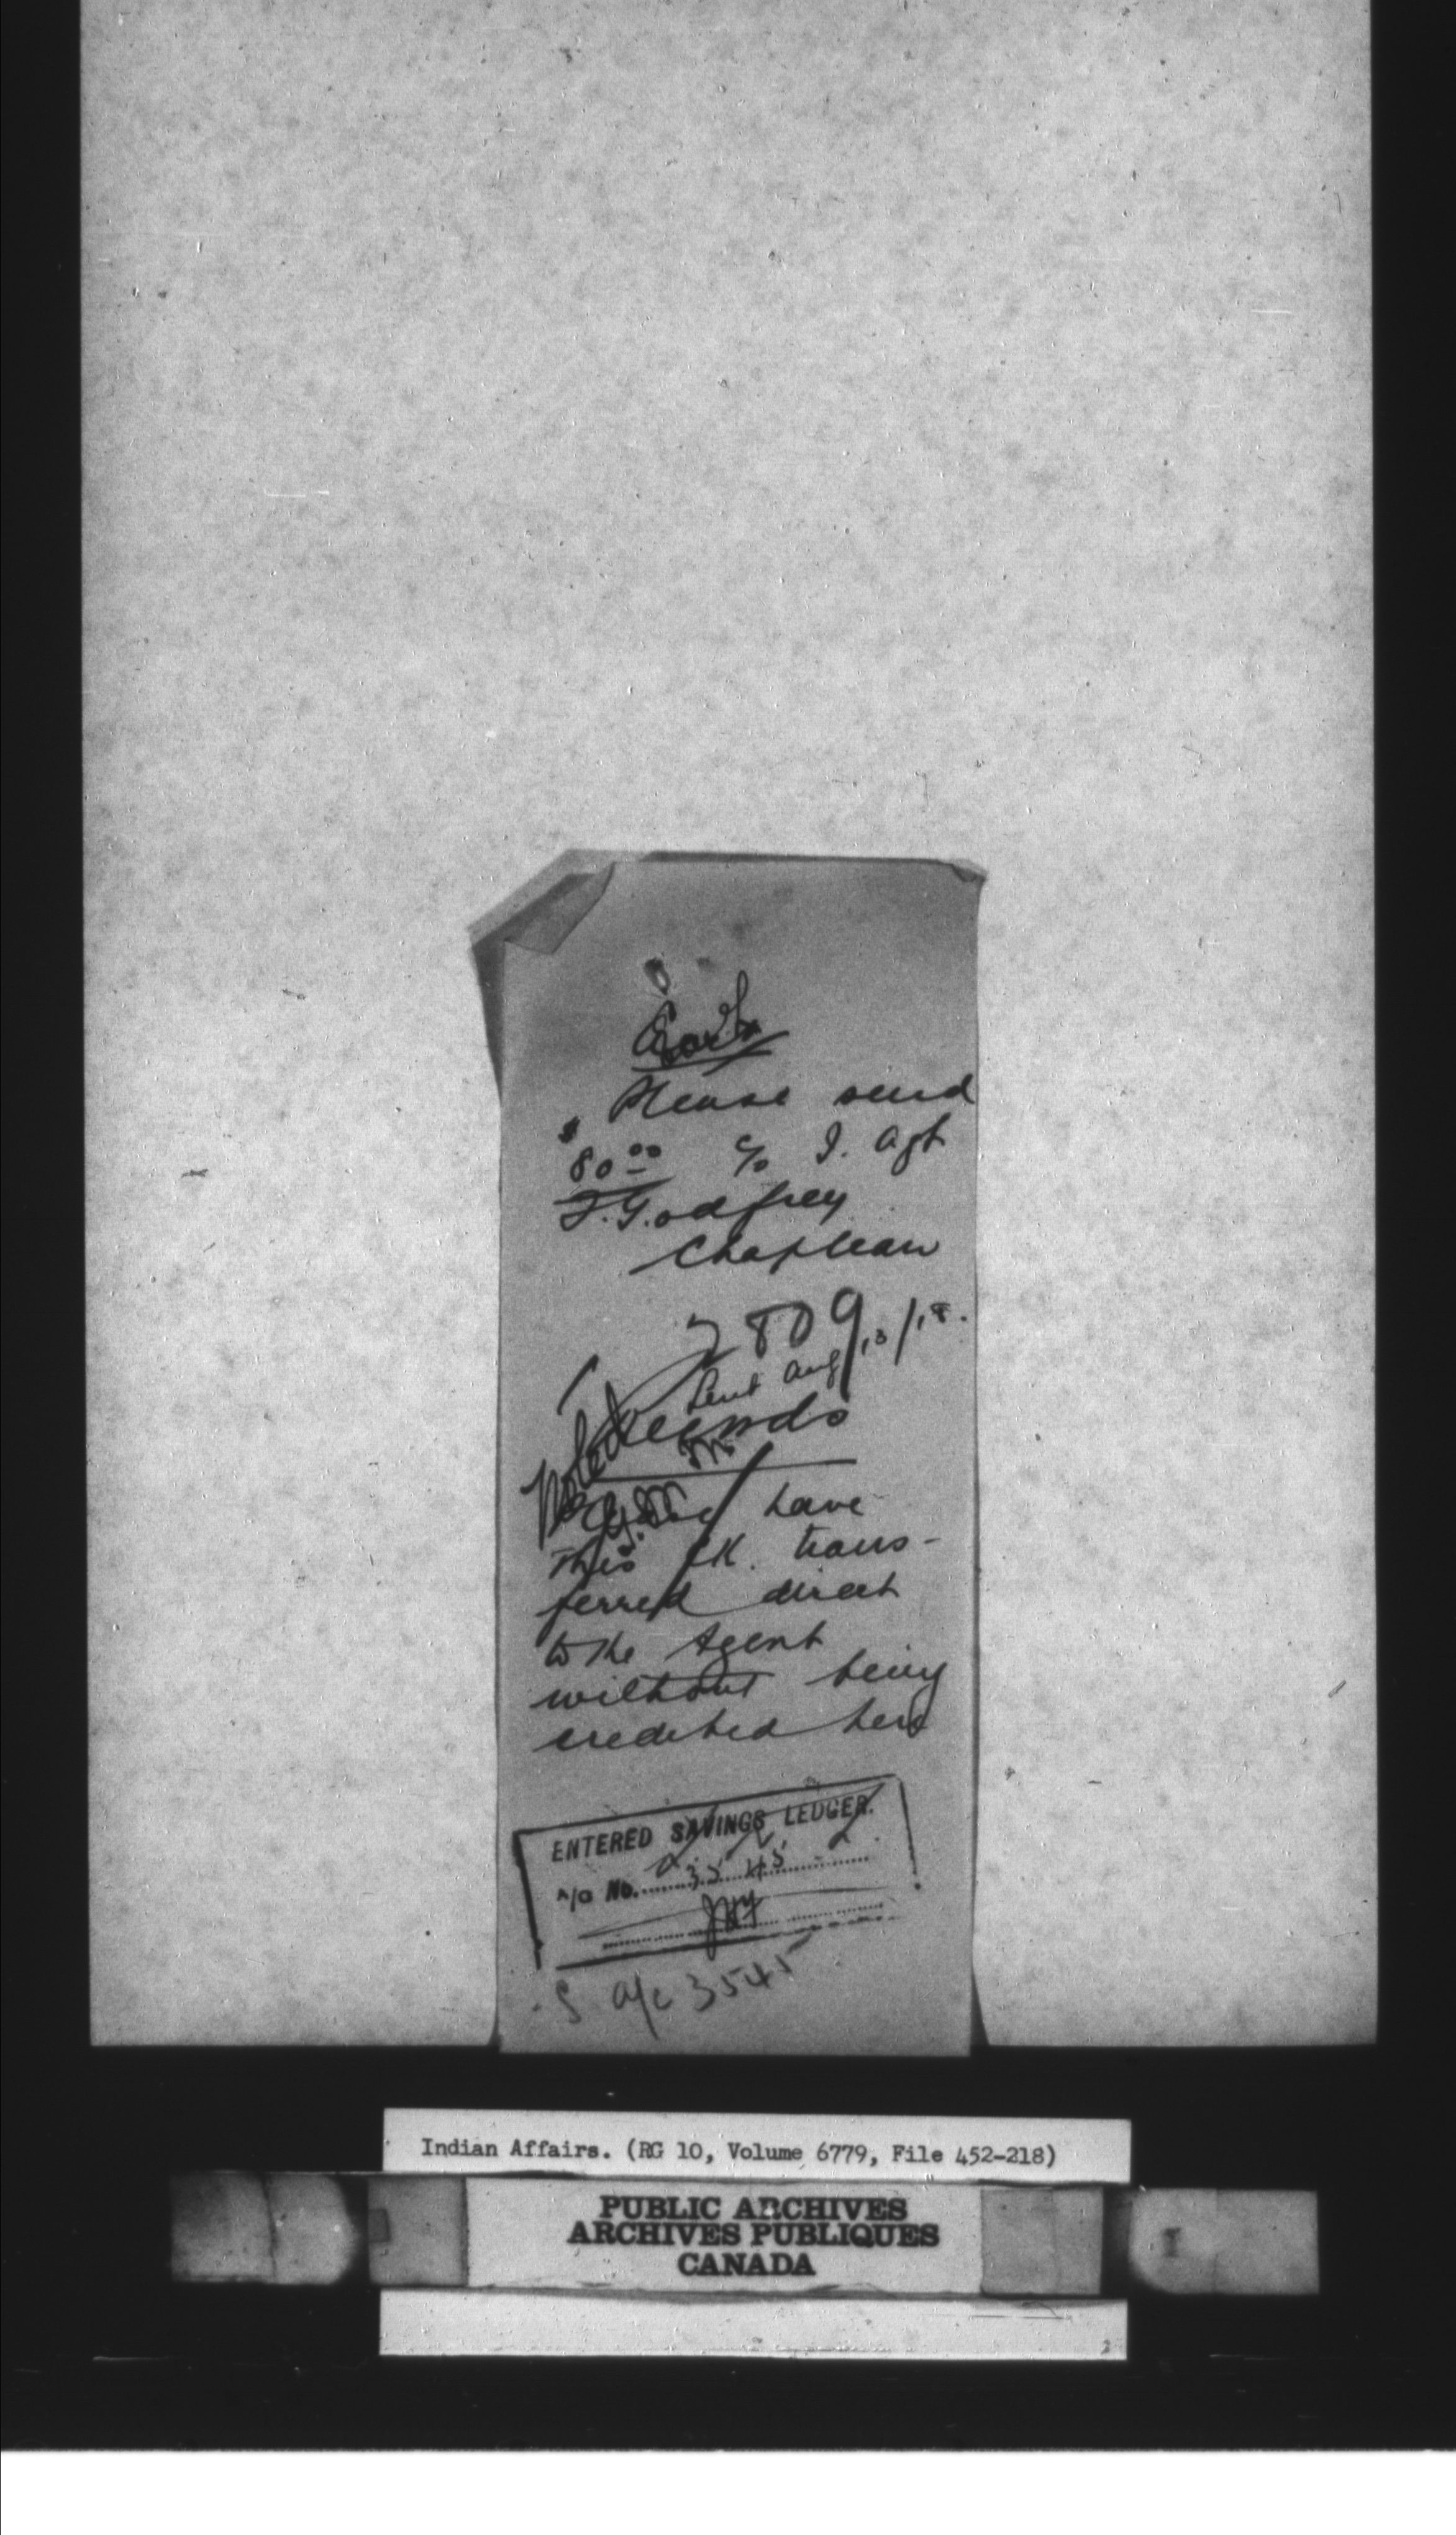 Please send
$80.00 c/o I. Agt
T. Godfrey
Chapleau
2809
Sent Aug 13/18.
Records
Noted
have
this ck. trans-
ferred direct
to the Agent
without being
credited here
ENTERED SAVINGS LEDGER.
A/C No. 3545
S a/c 3545
Indian Affairs. (RG 10, Volume 6779, File 452-218)
PUBLIC ARCHIVES
ARCHIVES PUBLIQUES
CANADA